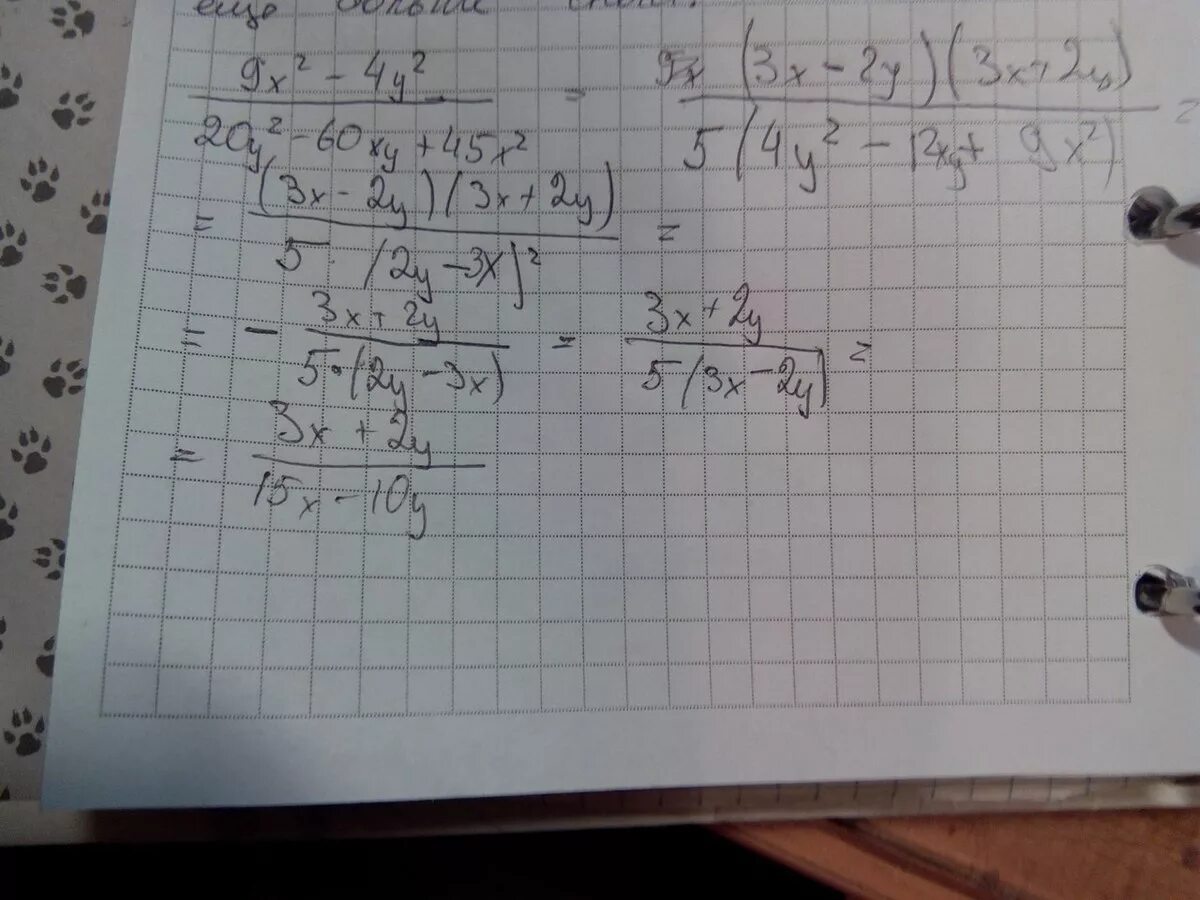 еще больше
9x² - 4y² / 20y² - 60xy + 45x² = (3x - 2y)(3x + 2y) / 5(4y² - 12xy + 9x²) =
= (3x - 2y)(3x + 2y) / 5 · (2y - 3x)² =
= - 3x + 2y / 5 · (2y - 3x) = 3x + 2y / 5(3x - 2y) =
= 3x + 2y / 15x - 10y